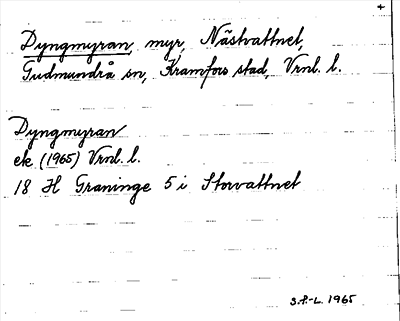 Dyngmyran, myr, Nästvattnet,
Gudmundrå sn, Kramfors stad, Vrnl. l.
Dyngmyran
ek. (1965) Vrnl. l.
18 H Graninge 5 i Storvattnet
S.P.-L. 1965